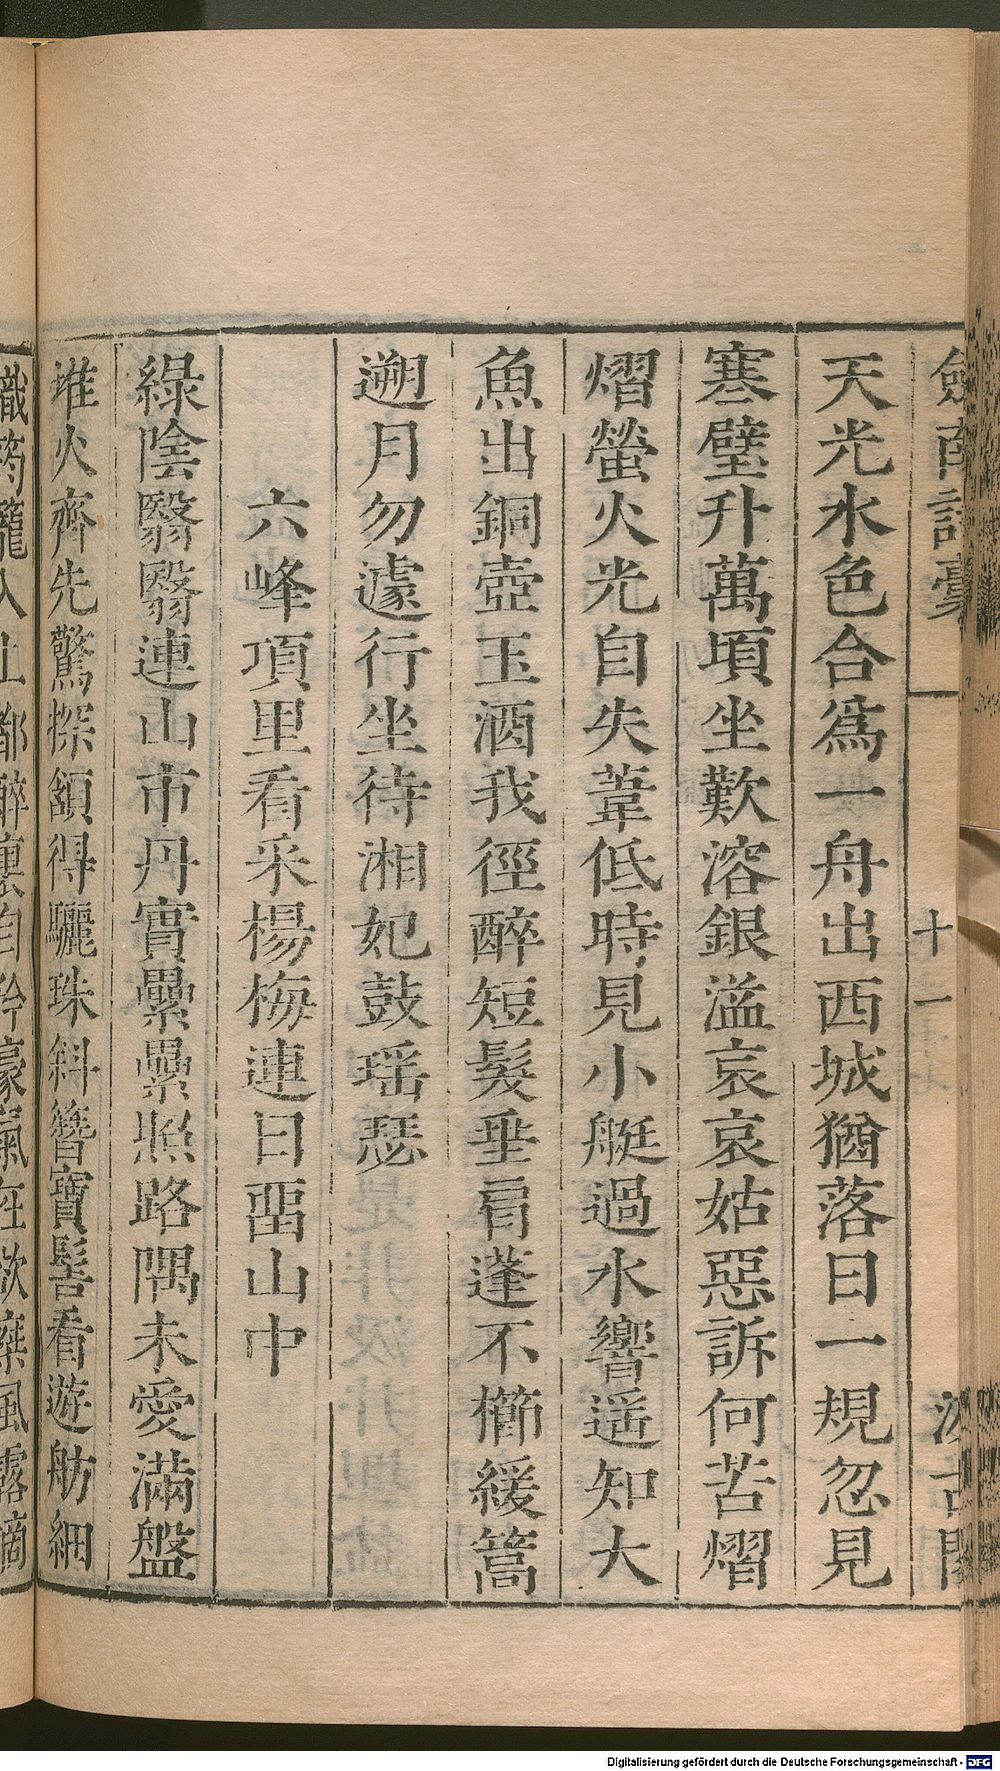 劍南詩稾
十一
汲古閣
天光水色合爲一舟出西城猶落日一規忽見
寒璧升萬頃坐歎溶銀溢哀哀姑惡訴何苦熠
熠螢火光自失葦低時見小艇過水響遥知大
魚出銅壺玉酒我徑醉短髮垂肩蓬不櫛緩篙
遡月勿遽行坐待湘妃鼓瑶瑟
六峰項里看采楊梅連日畱山中
綠陰翳翳連山市丹實纍纍照路隅未愛滿盤
堆火齊先驚探頷得驪珠斜簪寶髻看遊舫細
織筠籠入上都醉裏自矜豪氣在欲乘風露摘
Digitalisierung gefördert durch die Deutsche Forschungsgemeinschaft - DFG